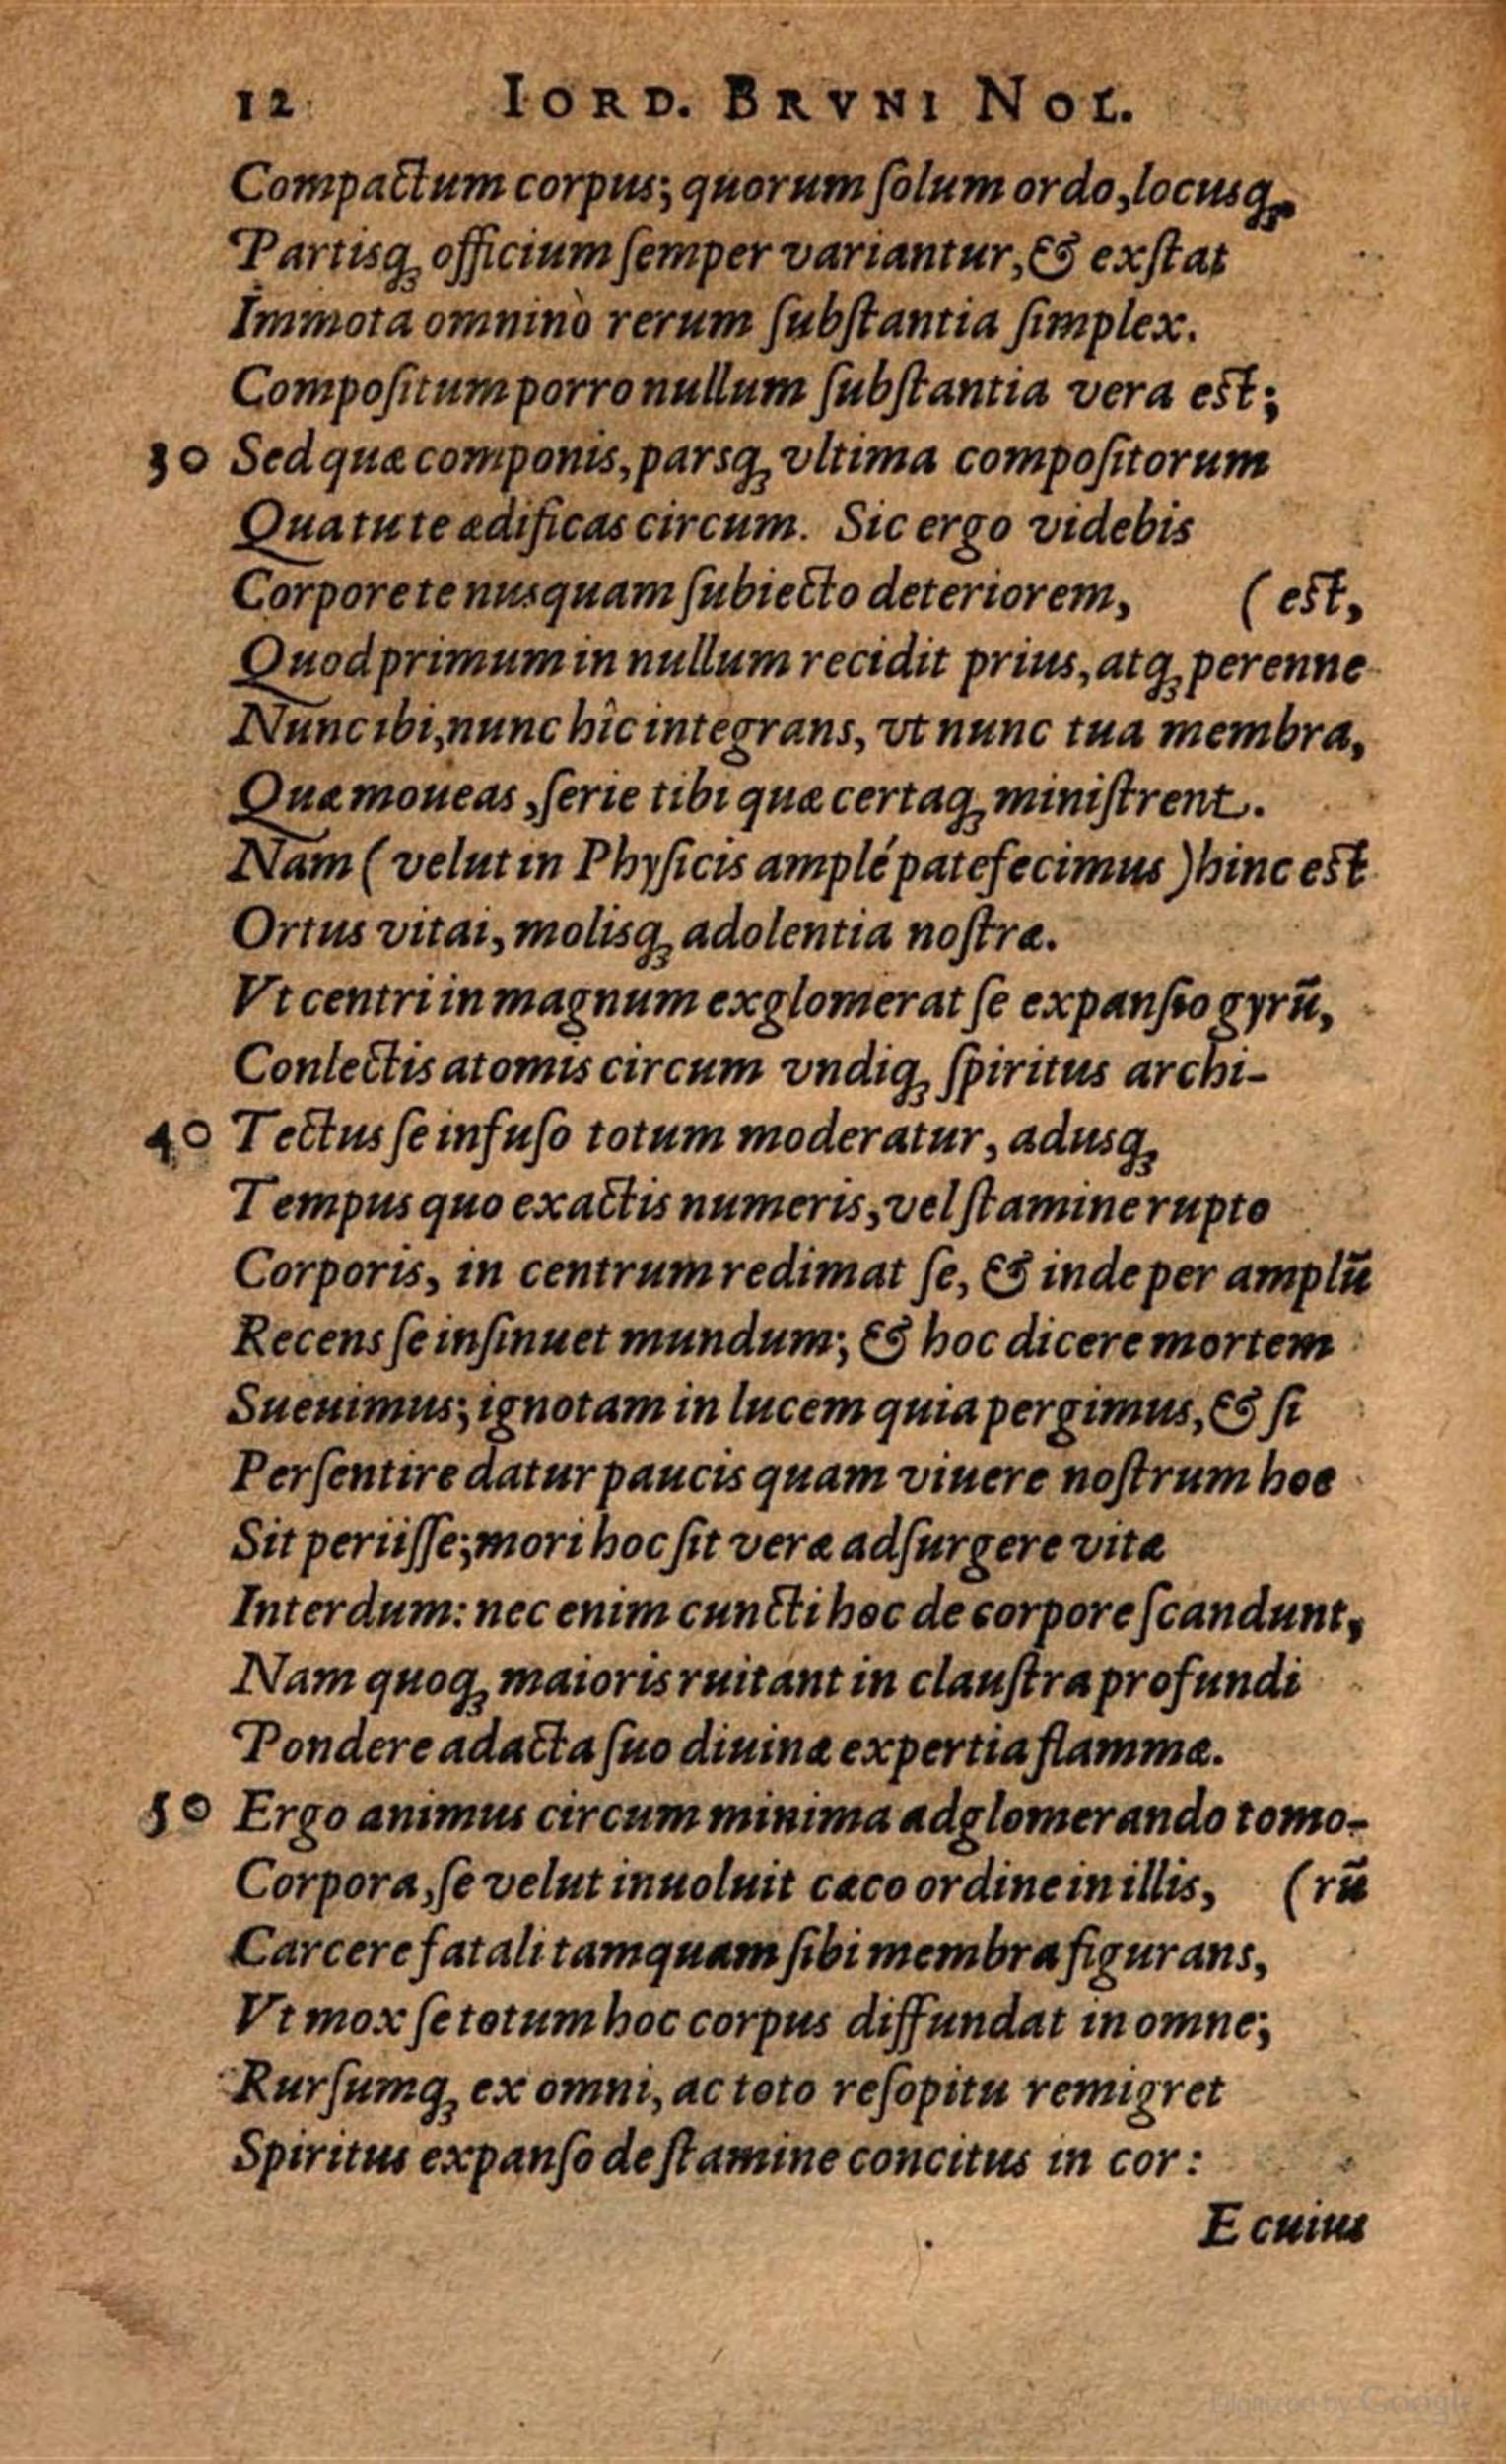 12 IORD. BRVNI NOL.
Compactum corpus; quorum ſolum ordo, locusq;
Partisq; officium ſemper variantur, & exſtat
Immota omninò rerum ſubſtantia ſimplex.
Compoſitum porro nullum ſubſtantia vera est;
30 Sed quæ componis, parsq; vltima compoſitorum
Qua tu te ædificas circum. Sic ergo videbis
Corpore te nusquam ſubiecto deteriorem, (est,
Quod primum in nullum recidit prius, atq; perenne
Nunc ibi, nunc hîc integrans, vt nunc tua membra,
Quæ moueas, ſerie tibi quæ certaq; miniſtrent.
Nam ( velut in Phyſicis amplé patefecimus ) hinc est
Ortus vitai, molisq; adolentia noſtræ.
Vt centri in magnum exglomerat ſe expanſio gyrū,
Conlectis atomis circum vndiq; ſpiritus archi-
40 Tectus ſe infuſo totum moderatur, adusq;
Tempus quo exactis numeris, vel ſtamine rupto
Corporis, in centrum redimat ſe, & inde per amplū
Recens ſe inſinuet mundum; & hoc dicere mortem
Sueuimus; ignotam in lucem quia pergimus, & ſi
Perſentire datur paucis quam viuere noſtrum hoc
Sit periiſſe; mori hoc ſit veræ adſurgere vitæ
Interdum: nec enim cuncti hoc de corpore ſcandunt,
Nam quoq; maioris ruitant in clauſtra profundi
Pondere adacta ſuo diuinæ expertia flammæ.
50 Ergo animus circum minima adglomerando tomo-
Corpora, ſe velut inuoluit cæco ordine in illis, (rū
Carcere fatali tamquam ſibi membra figurans,
Vt mox ſe totum hoc corpus diffundat in omne;
Rurſumq; ex omni, ac toto reſopitu remigret
Spiritus expanſo de ſtamine concitus in cor:
E cuius
Digitized by Google